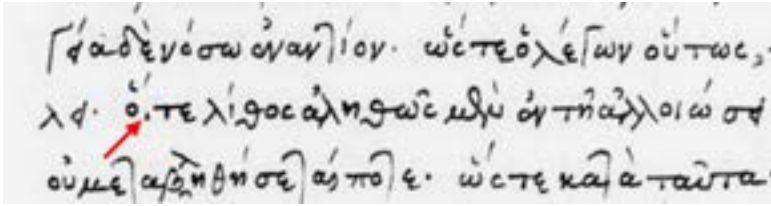 γεία δὲ νόσω ἐναντίον· ὥστε ὁ λέγων οὕτως,
λει· ὅ,τε λίθος ἀληθῶς μὲν ἐν τῆ ἀλλοιώσει
οὐ μεταβληθήσεταί ποτε· ὥστε κατὰ ταῦτα